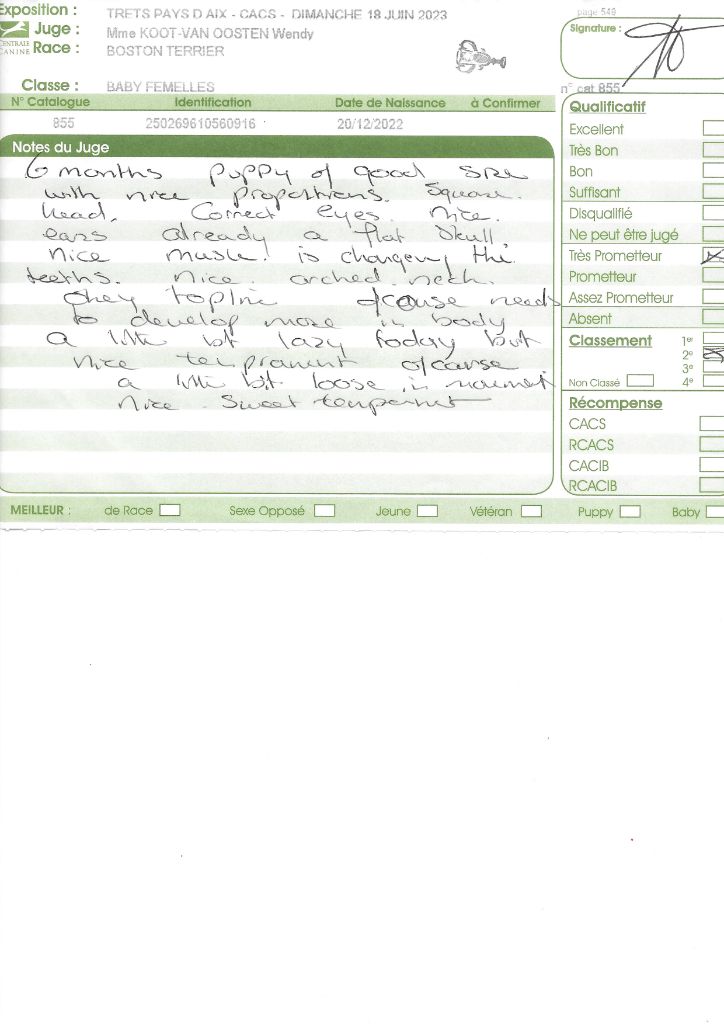 Exposition : TRETS PAYS D AIX - CACS - DIMANCHE 18 JUIN 2023
page 549
Juge : Mme KOOT-VAN OOSTEN Wendy
Signature :
CENTRALE CANINE
Race : BOSTON TERRIER
Classe : BABY FEMELLES
n° cat 855
N° Catalogue Identification Date de Naissance à Confirmer
855 250269610560916 20/12/2022
Notes du Juge
6 months puppy of good size
with nice propostions. Square.
head. Correct eyes. nice.
ears already a flat skull.
nice musle. is changeng the
teeths. nice. arched neck.
okey topline ofcause needs
to develop more in body
a little bit lazy today but
nice temprament ofcause
a little bit loose in
nice. Sweet
Qualificatif
Excellent
Très Bon
Bon
Suffisant
Disqualifié
Ne peut être jugé
Très Prometteur
Prometteur
Assez Prometteur
Absent
Classement 1er
2e
3e
Non Classé 4e
Récompense
CACS
RCACS
CACIB
RCACIB
MEILLEUR : de Race Sexe Opposé Jeune Vétéran Puppy Baby